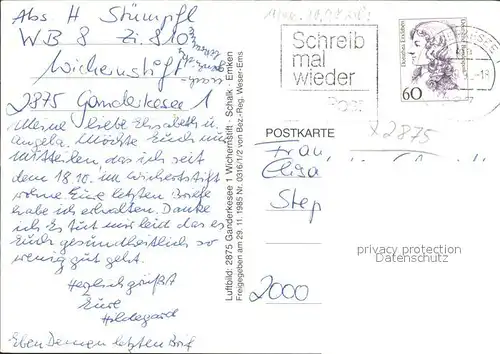 Abs H Stümpfl
WB 8 Zi. 810
Wichernstift
2875 Ganderkesee 1
Meine liebe Elisabeth u.
Angela. Möchte Euch nur
Mitteilen das ich seit
dem 18.10. im Wichertstift
wohne Eure letzten Briefe
habe ich erhalten. Danke
ich Es tut mir leid das es
Euch gesundheitlich so
wenig gut geht.
Herzlich grüßt
Eure
Hildegard
Eben Deinen letzten Brief
Luftbild: 2875 Ganderkesee 1 Wichernstift - Schalk - Emken
Freigegeben am 29. 11. 1985 Nr. 0316/1/2 von Bez.-Reg. Weser-Ems
Schreib
mal
wieder
Post
Deutsche Bundespost
60
POSTKARTE
x 2875
Frau
Elisa
Step
2000
privacy protection
Datenschutz